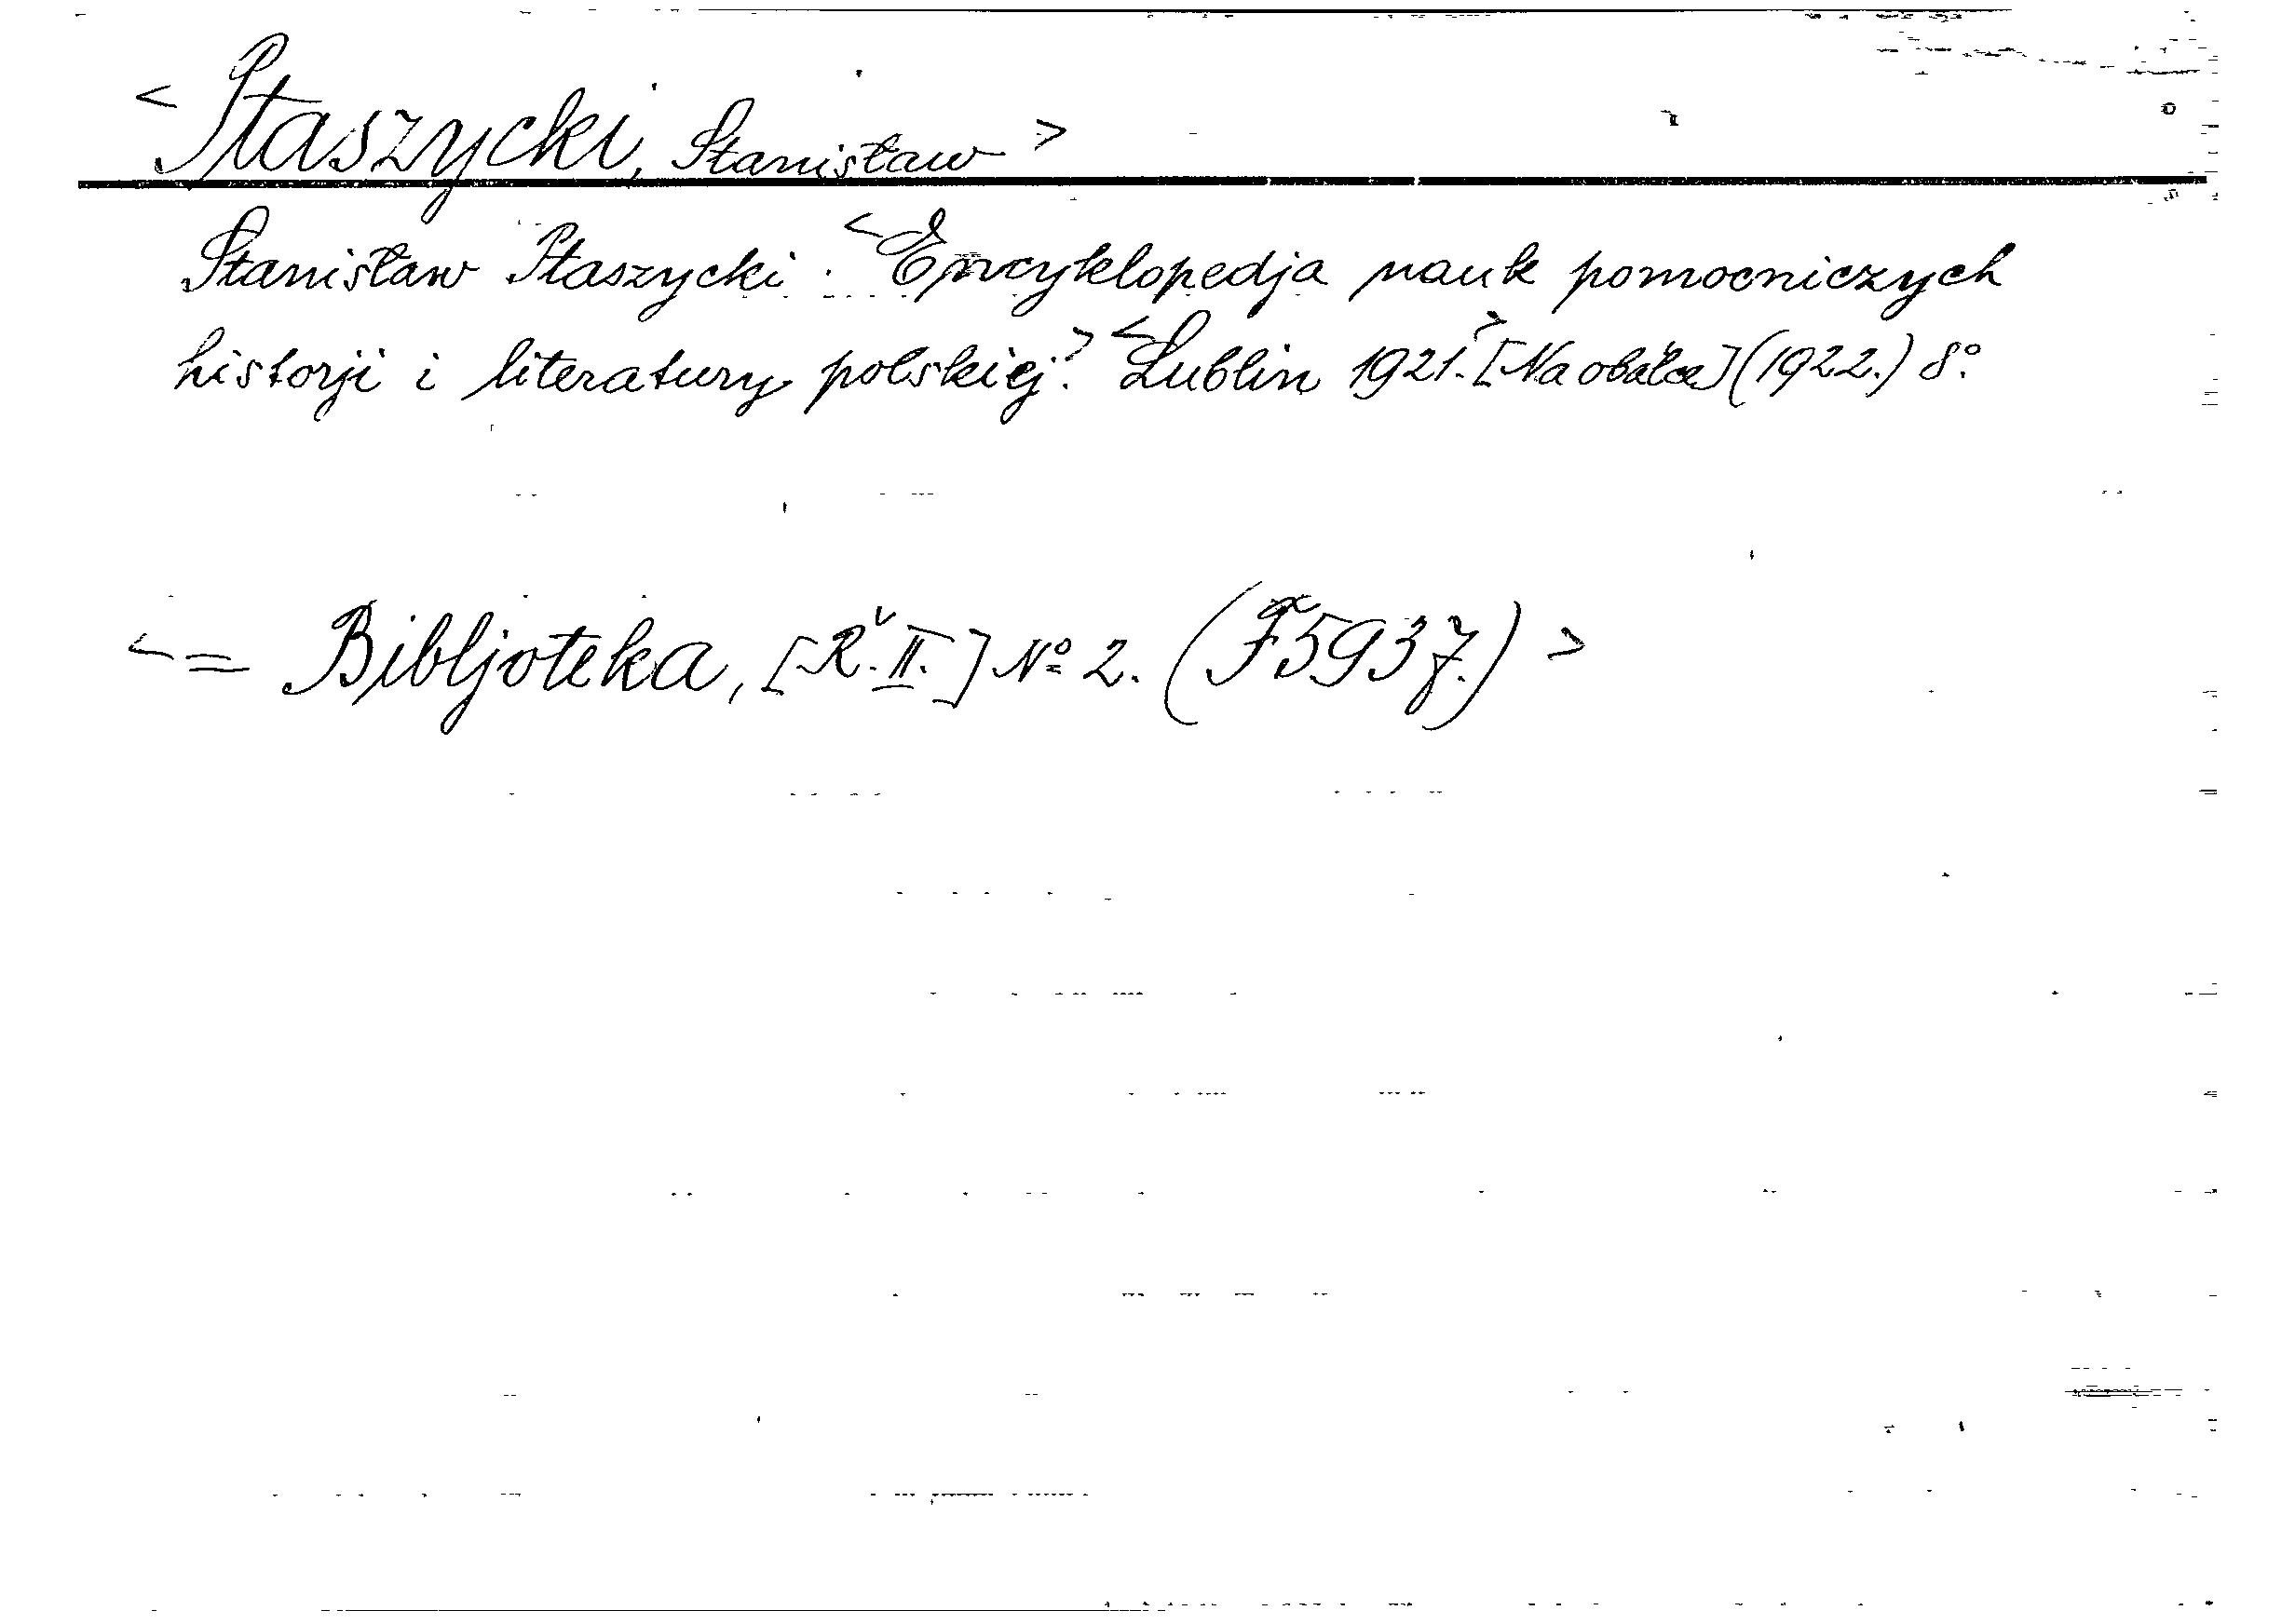 < Ptaszycki, Stanisław >
Stanisław Ptaszycki. < Encyklopedja nauk pomocniczych
historji i literatury polskiej. > < Lublin 1921. > [Na obálce] (1922.) 8º.
< = Bibljoteka, [Ř. II.] Nº 2. (F5937.) >